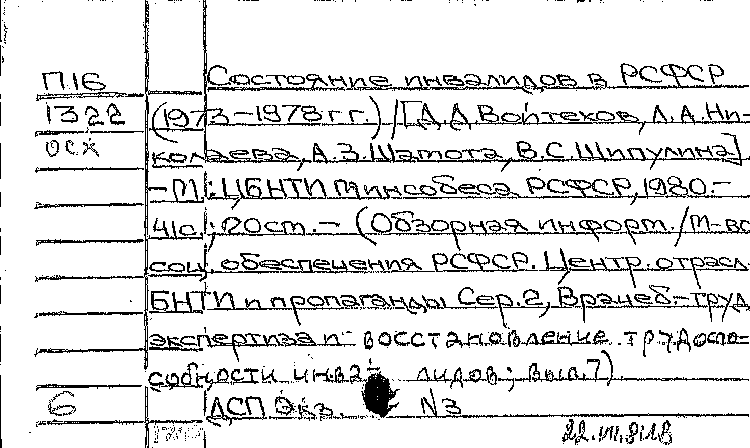 П.16 Состояние инвалидов в РСФСР
1322 (1973-1978 гг.)/[Д.Д. Войтехов, Л.А. Ни-
осж колаева, А.З. Шамота, В.С. Шипулина].
-М.: ЦБНТИ Минсобеса РСФСР, 1980.-
41с.; 20см. - (Обзорная информ./М-во
соц. обеспечения РСФСР. Центр. отрасл.
БНТИ и пропаганды Сер.2, Врачеб-труд
экспертиза и восстановление трудоспо-
собности инва- лидов; вып.7).
6 ДСП Экз. N3